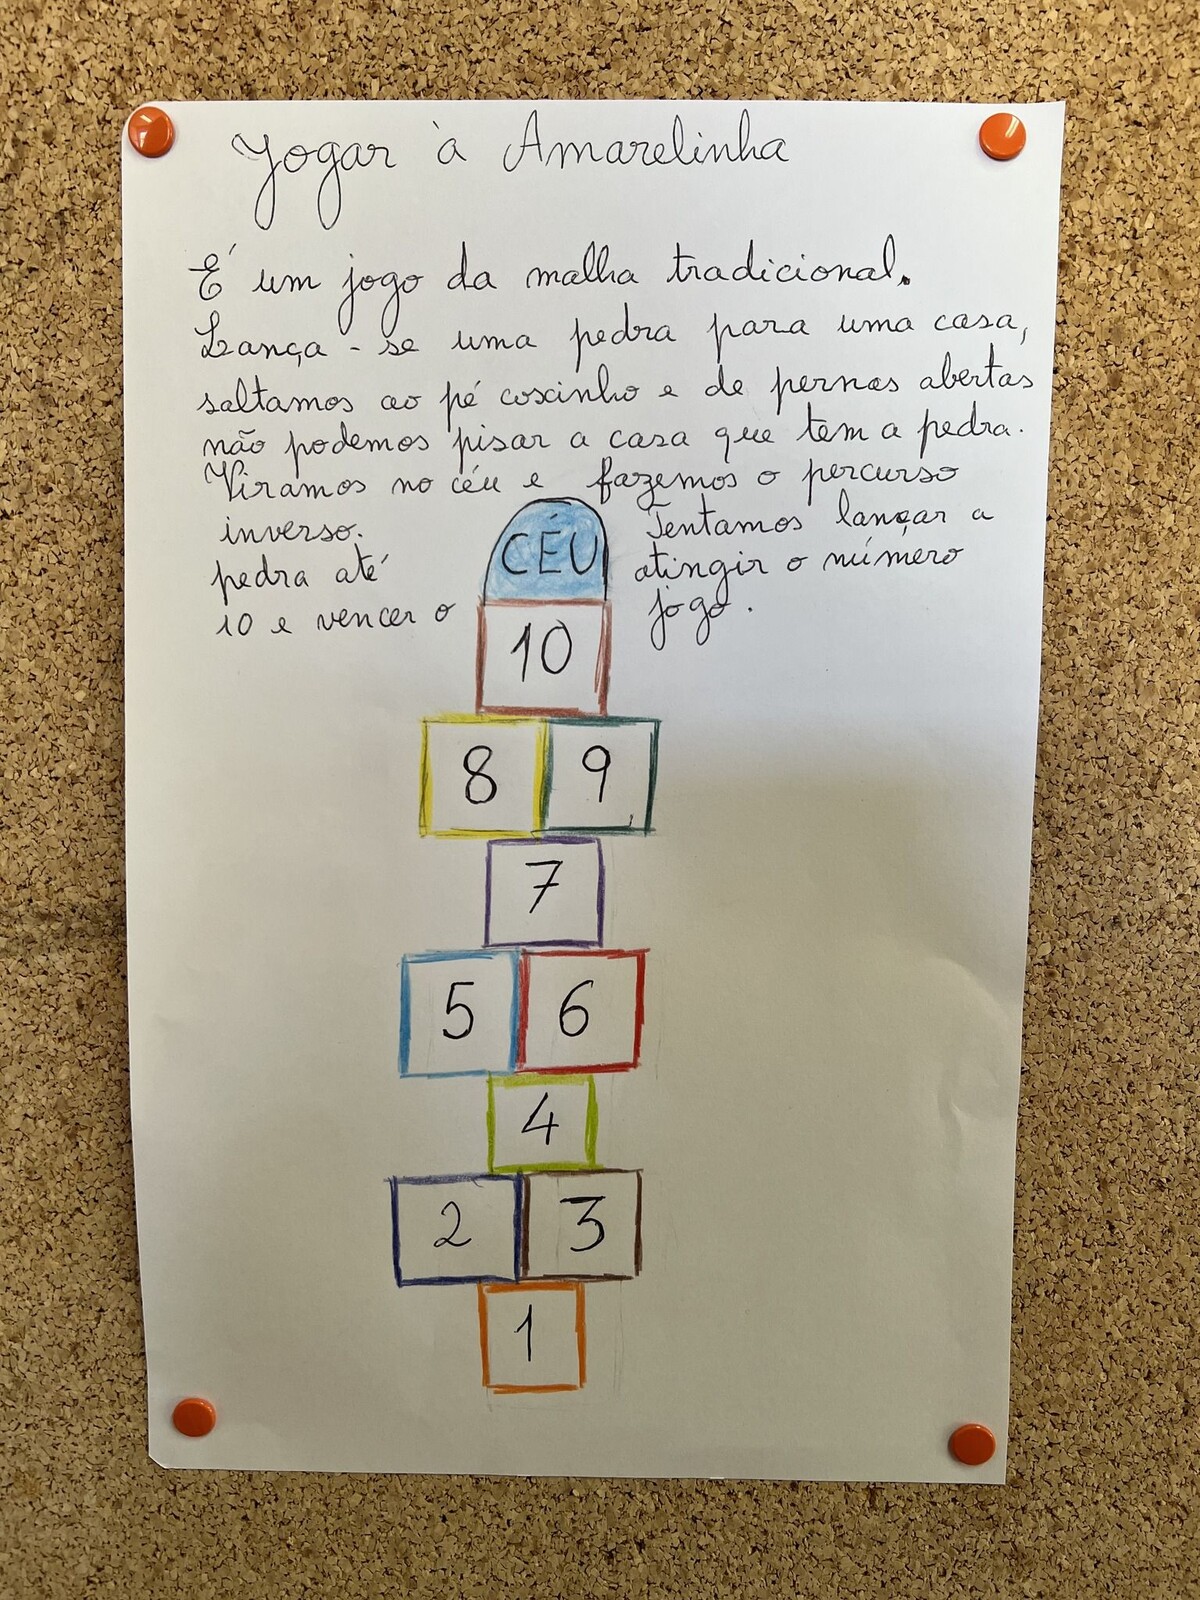 Jogar à Amarelinha
É um jogo da malha tradicional.
Lança-se uma pedra para uma casa,
saltamos ao pé coxinho e de pernas abertas
não podemos pisar a casa que tem a pedra.
Viramos no céu e fazemos o percurso
inverso. Tentamos lançar a
pedra até atingir o número
10 e vencer o jogo.
CÉU
10
8 9
7
5 6
4
2 3
1